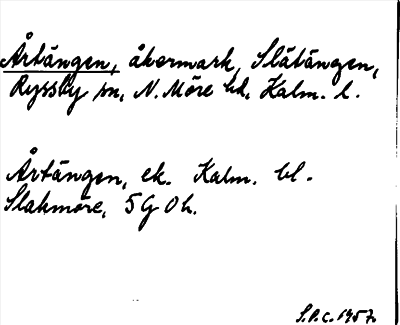 Årtängen, åkermark, Slätängen,
Ryssby sn, N. Möre hd, Kalm. l.
Årtängen, ek. Kalm. bl.
Slakmöre, 5G Oh.
S.P.C. 1957